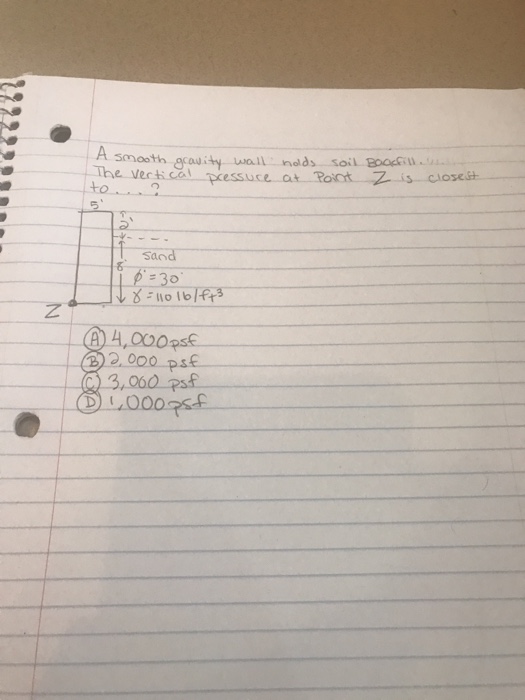 A smooth gravity wall holds soil Backfill.
The vertical pressure at Point Z is closest
to...?
5'
2'
sand
8'
φ' = 30°
γ = 110 lb/ft3
Z
(A) 4,000 psf
(B) 2,000 psf
(C) 3,000 psf
(D) 1,000 psf